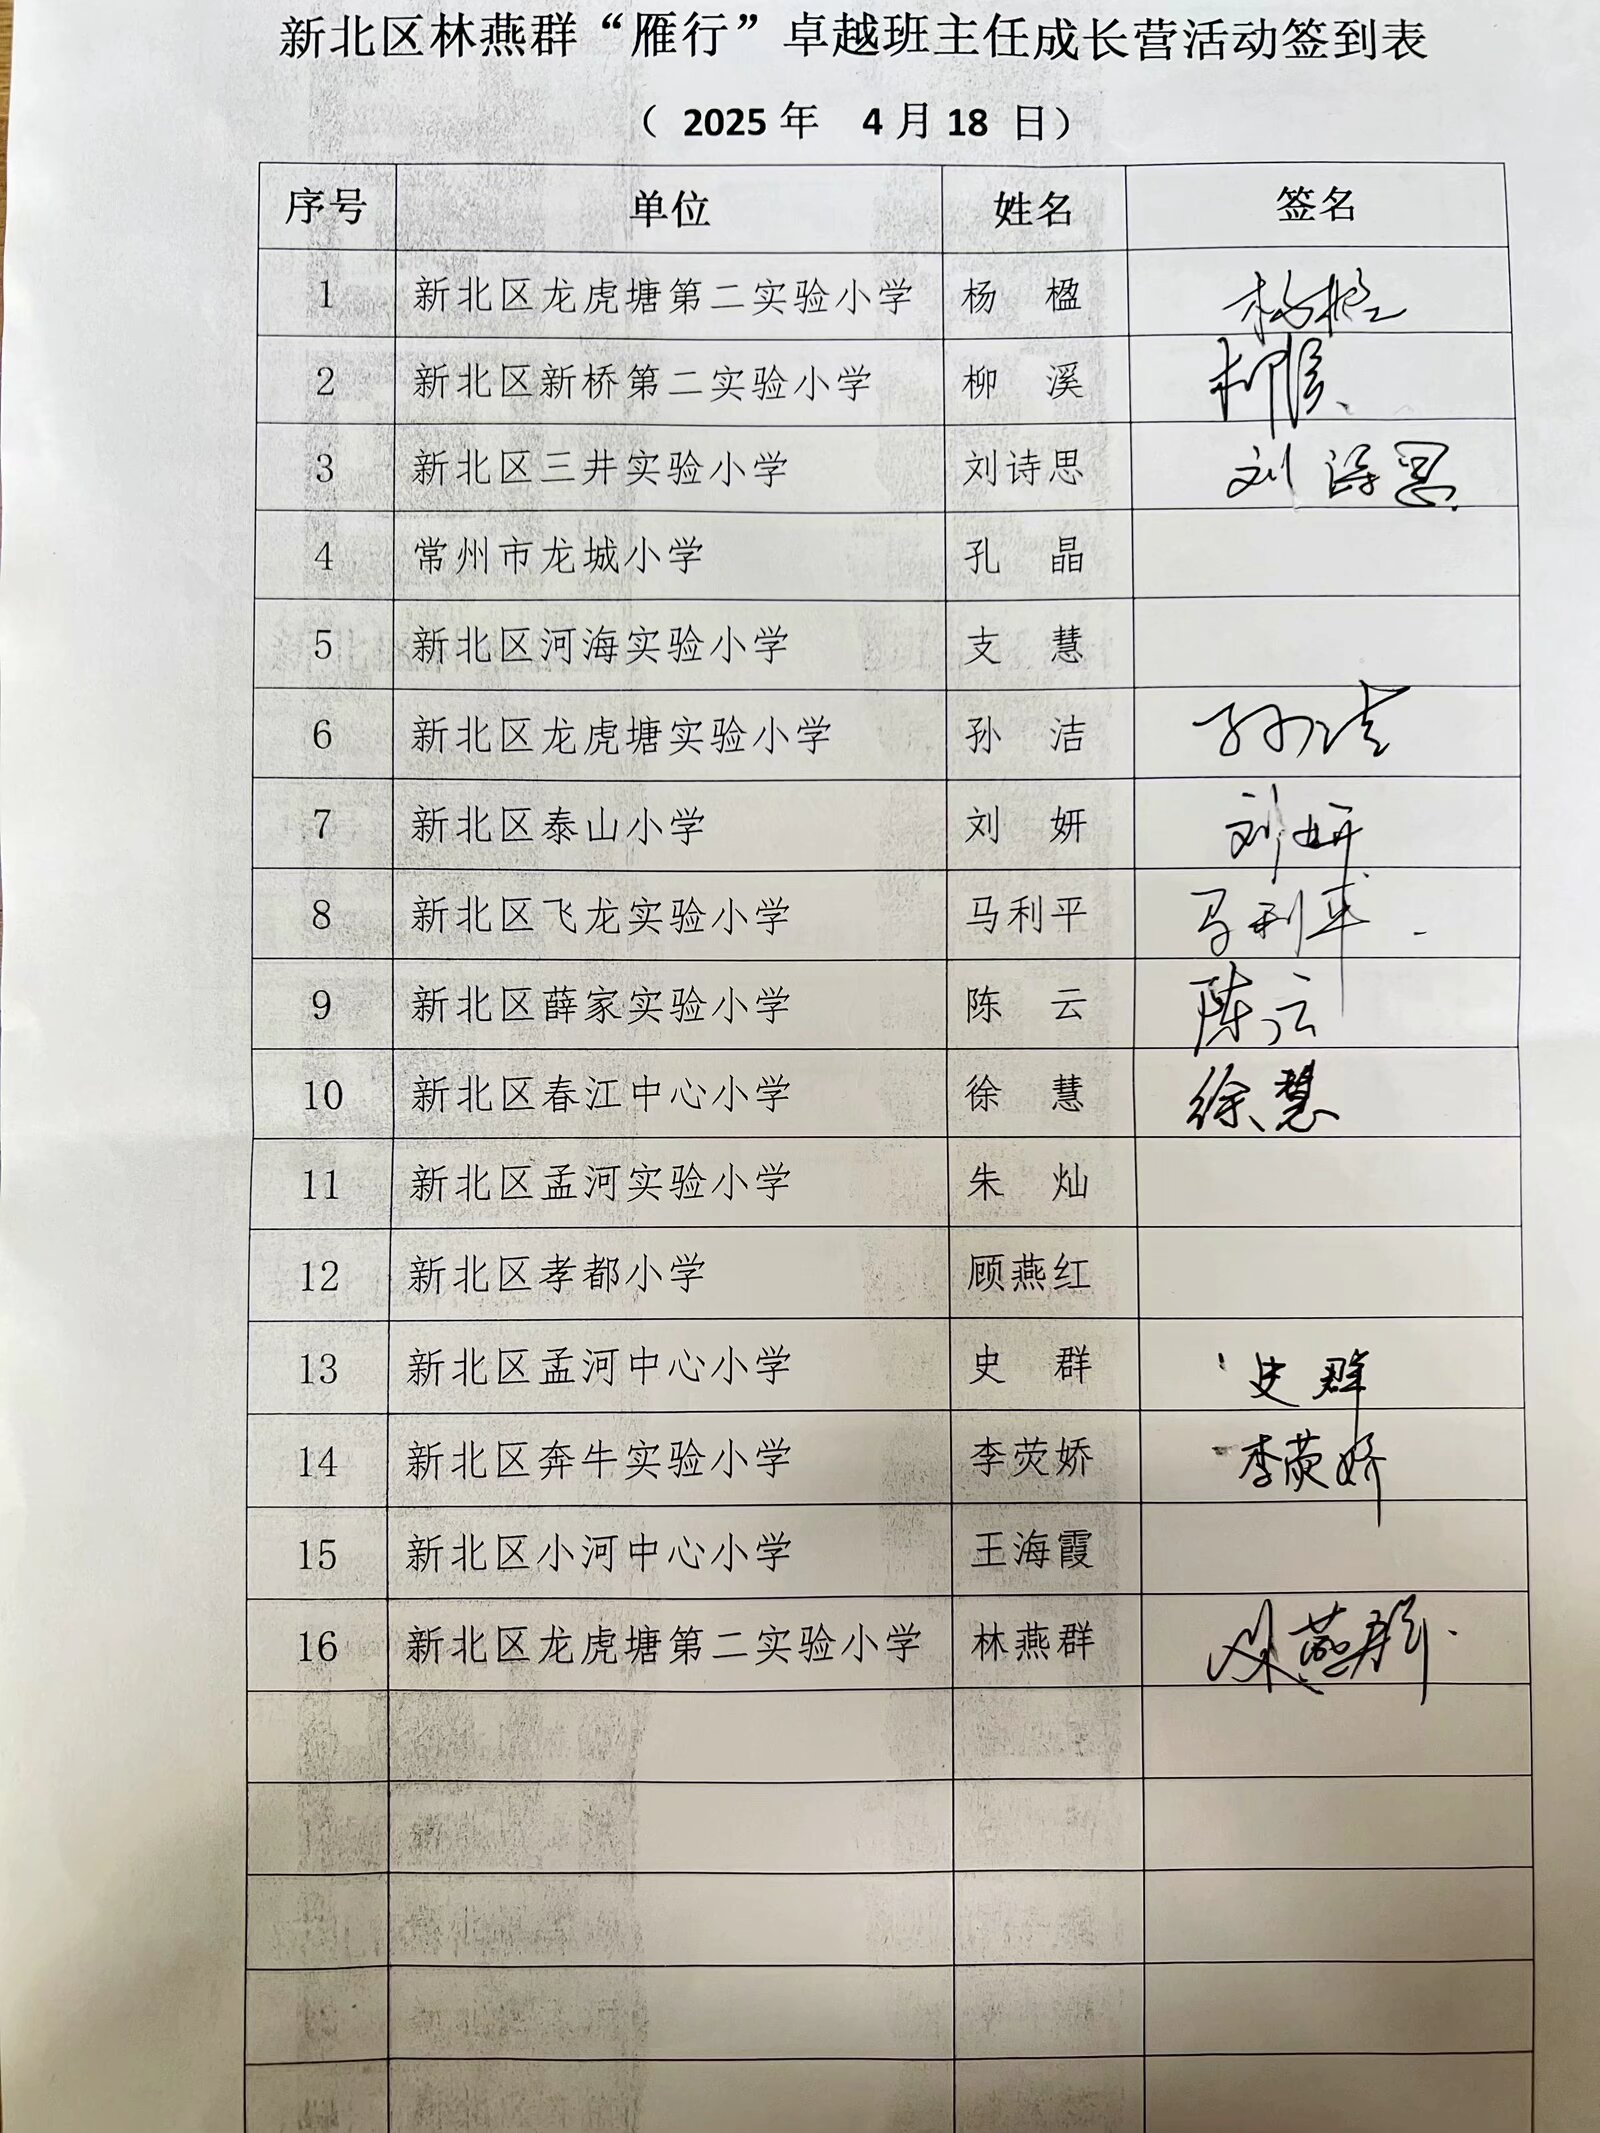 新北区林燕群“雁行”卓越班主任成长营活动签到表
（ 2025 年 4 月 18 日）
序号 单位 姓名 签名
1 新北区龙虎塘第二实验小学 杨 楹 杨楹
2 新北区新桥第二实验小学 柳 溪 柳溪
3 新北区三井实验小学 刘诗思 刘诗思
4 常州市龙城小学 孔 晶
5 新北区河海实验小学 支 慧
6 新北区龙虎塘实验小学 孙 洁 孙洁
7 新北区泰山小学 刘 妍 刘妍
8 新北区飞龙实验小学 马利平 马利平
9 新北区薛家实验小学 陈 云 陈云
10 新北区春江中心小学 徐 慧 徐慧
11 新北区孟河实验小学 朱 灿
12 新北区孝都小学 顾燕红
13 新北区孟河中心小学 史 群 史群
14 新北区奔牛实验小学 李荧娇 李荧娇
15 新北区小河中心小学 王海霞
16 新北区龙虎塘第二实验小学 林燕群 林燕群